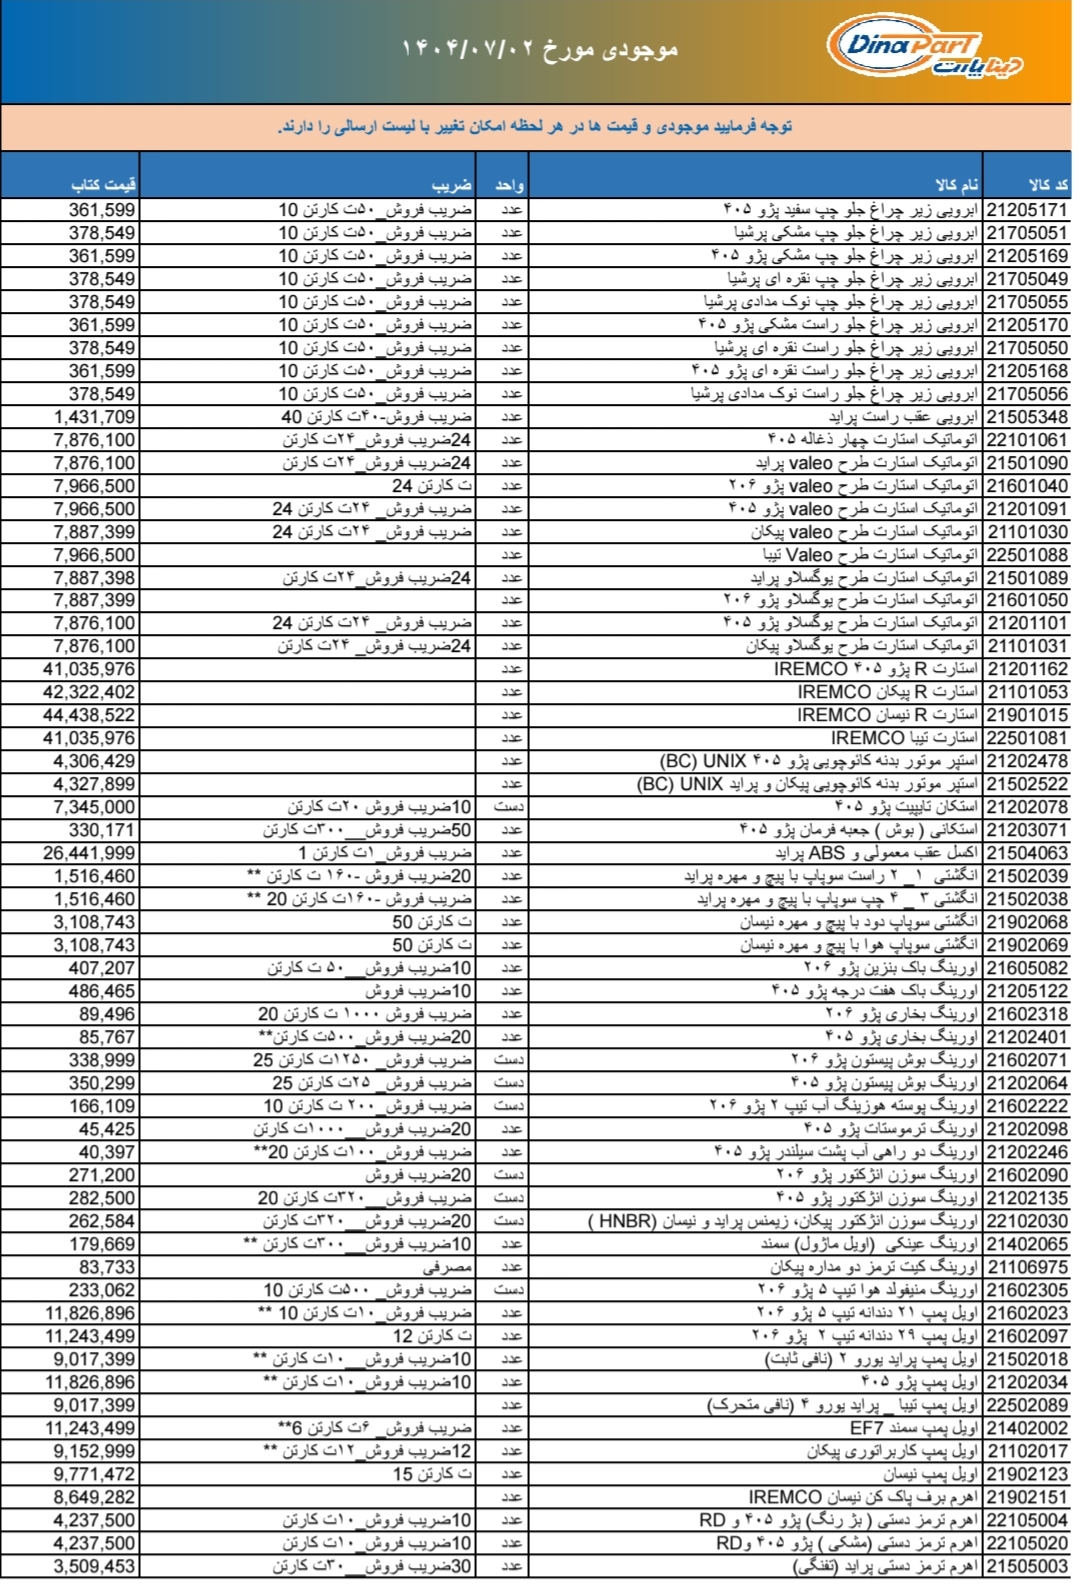 DinaPart
دینا پارت
موجودی مورخ ۱۴۰۴/۰۷/۰۲
توجه فرمایید موجودی و قیمت ها در هر لحظه امکان تغییر با لیست ارسالی را دارند.
کد کالا نام کالا واحد ضریب قیمت کتاب
21205171 ابرویی زیر چراغ جلو چپ سفید پژو ۴۰۵ عدد ضریب فروش_۵۰ت کارتن 10 361,599
21705051 ابرویی زیر چراغ جلو چپ مشکی پرشیا عدد ضریب فروش_۵۰ت کارتن 10 378,549
21205169 ابرویی زیر چراغ جلو چپ مشکی پژو ۴۰۵ عدد ضریب فروش_۵۰ت کارتن 10 361,599
21705049 ابرویی زیر چراغ جلو چپ نقره ای پرشیا عدد ضریب فروش_۵۰ت کارتن 10 378,549
21705055 ابرویی زیر چراغ جلو چپ نوک مدادی پرشیا عدد ضریب فروش_۵۰ت کارتن 10 378,549
21205170 ابرویی زیر چراغ جلو راست مشکی پژو ۴۰۵ عدد ضریب فروش_۵۰ت کارتن 10 361,599
21705050 ابرویی زیر چراغ جلو راست نقره ای پرشیا عدد ضریب فروش_۵۰ت کارتن 10 378,549
21205168 ابرویی زیر چراغ جلو راست نقره ای پژو ۴۰۵ عدد ضریب فروش_۵۰ت کارتن 10 361,599
21705056 ابرویی زیر چراغ جلو راست نوک مدادی پرشیا عدد ضریب فروش_۵۰ت کارتن 10 378,549
21505348 ابرویی عقب راست پراید عدد ضریب فروش-۴۰ت کارتن 40 1,431,709
22101061 اتوماتیک استارت چهار ذغاله ۴۰۵ عدد 24ضریب فروش_۲۴ت کارتن 7,876,100
21501090 اتوماتیک استارت طرح valeo پراید عدد 24ضریب فروش_۲۴ت کارتن 7,876,100
21601040 اتوماتیک استارت طرح valeo پژو ۲۰۶ عدد ت کارتن 24 7,966,500
21201091 اتوماتیک استارت طرح valeo پژو ۴۰۵ عدد ضریب فروش_ ۲۴ت کارتن 24 7,966,500
21101030 اتوماتیک استارت طرح valeo پیکان عدد ضریب فروش_ ۲۴ت کارتن 24 7,887,399
22501088 اتوماتیک استارت طرح Valeo تیبا عدد 7,966,500
21501089 اتوماتیک استارت طرح یوگسلاو پراید عدد 24ضریب فروش_۲۴ت کارتن 7,887,398
21601050 اتوماتیک استارت طرح یوگسلاو پژو ۲۰۶ عدد 7,887,399
21201101 اتوماتیک استارت طرح یوگسلاو پژو ۴۰۵ عدد ضریب فروش_ ۲۴ت کارتن 24 7,876,100
21101031 اتوماتیک استارت طرح یوگسلاو پیکان عدد 24ضریب فروش_ ۲۴ت کارتن 7,876,100
21201162 استارت R پژو ۴۰۵ IREMCO عدد 41,035,976
21101053 استارت R پیکان IREMCO عدد 42,322,402
21901015 استارت R نیسان IREMCO عدد 44,438,522
22501081 استارت تیبا IREMCO عدد 41,035,976
21202478 استپر موتور بدنه کائوچویی پژو ۴۰۵ UNIX (BC) عدد 4,306,429
21502522 استپر موتور بدنه کائوچویی پیکان و پراید UNIX (BC) عدد 4,327,899
21202078 استکان تایپیت پژو ۴۰۵ دست 10ضریب فروش ۲۰ت کارتن 7,345,000
21203071 استکانی ( بوش ) جعبه فرمان پژو ۴۰۵ عدد 50ضریب فروش__۳۰۰ت کارتن 330,171
21504063 اکسل عقب معمولی و ABS پراید عدد ضریب فروش_۱ت کارتن 1 26,441,999
21502039 انگشتی ۱_ ۲ راست سوپاپ با پیچ و مهره پراید عدد 20ضریب فروش -۱۶۰ ت کارتن ** 1,516,460
21502038 انگشتی ۳ _ ۴ چپ سوپاپ با پیچ و مهره پراید عدد ضریب فروش -۱۶۰ت کارتن 20 ** 1,516,460
21902068 انگشتی سوپاپ دود با پیچ و مهره نیسان عدد ت کارتن 50 3,108,743
21902069 انگشتی سوپاپ هوا با پیچ و مهره نیسان عدد ت کارتن 50 3,108,743
21605082 اورینگ باک بنزین پژو ۲۰۶ عدد 10ضریب فروش__۵۰ ت کارتن 407,207
21205122 اورینگ باک هفت درجه پژو ۴۰۵ عدد 10ضریب فروش 486,465
21602318 اورینگ بخاری پژو ۲۰۶ عدد ضریب فروش ۱۰۰۰ ت کارتن 20 89,496
21202401 اورینگ بخاری پژو ۴۰۵ عدد 20ضریب فروش_۵۰۰ت کارتن** 85,767
21602071 اورینگ بوش پیستون پژو ۲۰۶ دست ضریب فروش_ ۱۲۵۰ت کارتن 25 338,999
21202064 اورینگ بوش پیستون پژو ۴۰۵ دست ضریب فروش_ ۲۵ت کارتن 25 350,299
21602222 اورینگ پوسته هوزینگ آب تیپ ۲ پژو ۲۰۶ دست ضریب فروش_۲۰۰ ت کارتن 10 166,109
21202098 اورینگ ترموستات پژو ۴۰۵ عدد 20ضریب فروش__۱۰۰۰ت کارتن 45,425
21202246 اورینگ دو راهی آب پشت سیلندر پژو ۴۰۵ عدد ضریب فروش_۱۰۰ت کارتن 20** 40,397
21602090 اورینگ سوزن انژکتور پژو ۲۰۶ دست 20ضریب فروش 271,200
21202135 اورینگ سوزن انژکتور پژو ۴۰۵ دست ضریب فروش__۳۲۰ت کارتن 20 282,500
22102030 اورینگ سوزن انژکتور پیکان، زیمنس پراید و نیسان (HNBR ) دست 20ضریب فروش__۳۲۰ت کارتن 262,584
21402065 اورینگ عینکی (اویل ماژول) سمند عدد 10ضریب فروش__۳۰۰ت کارتن ** 179,669
21106975 اورینگ کیت ترمز دو مداره پیکان عدد مصرفی 83,733
21602305 اورینگ منیفولد هوا تیپ ۵ پژو ۲۰۶ دست ضریب فروش__۵۰۰ت کارتن 10 233,062
21602023 اویل پمپ ۲۱ دندانه تیپ ۵ پژو ۲۰۶ عدد ضریب فروش_۱۰ت کارتن 10 ** 11,826,896
21602097 اویل پمپ ۲۹ دندانه تیپ ۲ پژو ۲۰۶ عدد ت کارتن 12 11,243,499
21502018 اویل پمپ پراید یورو ۲ (نافی ثابت) عدد 10ضریب فروش__۱۰ت کارتن ** 9,017,399
21202034 اویل پمپ پژو ۴۰۵ عدد 10ضریب فروش_۱۰ت کارتن ** 11,826,896
22502089 اویل پمپ تیبا _ پراید یورو ۴ (نافی متحرک) عدد 9,017,399
21402002 اویل پمپ سمند EF7 عدد ضریب فروش_ ۶ت کارتن 6** 11,243,499
21102017 اویل پمپ کاربراتوری پیکان عدد 12ضریب فروش_۱۲ت کارتن ** 9,152,999
21902123 اویل پمپ نیسان عدد ت کارتن 15 9,771,472
21902151 اهرم برف پاک کن نیسان IREMCO عدد 8,649,282
22105004 اهرم ترمز دستی ( بژ رنگ) پژو ۴۰۵ و RD عدد 10ضریب فروش_۱۰ت کارتن 4,237,500
22105020 اهرم ترمز دستی (مشکی ) پژو ۴۰۵ وRD عدد 10ضریب فروش_۱۰ت کارتن 4,237,500
21505003 اهرم ترمز دستی پراید (تفنگی) عدد 30ضریب فروش__۳۰ت کارتن 3,509,453